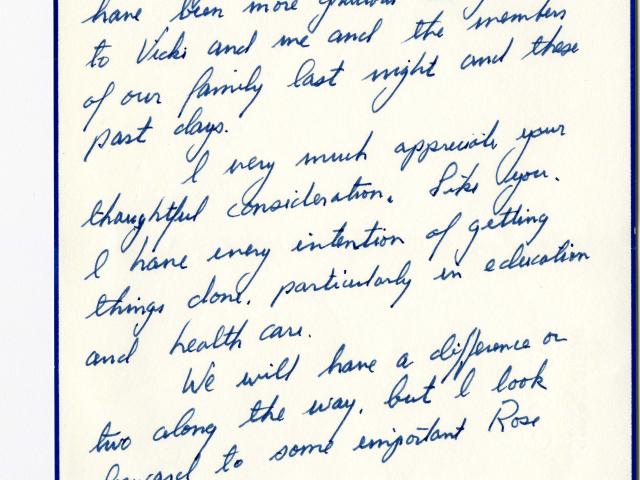 have been more gracious
to Vicki and me and the members
of our family last night and these
past days.
I very much appreciate your
thoughtful consideration. Like you.
I have every intention of getting
things done, particularly in education
and health care.
We will have a difference or
two along the way, but I look
forward to some important Rose